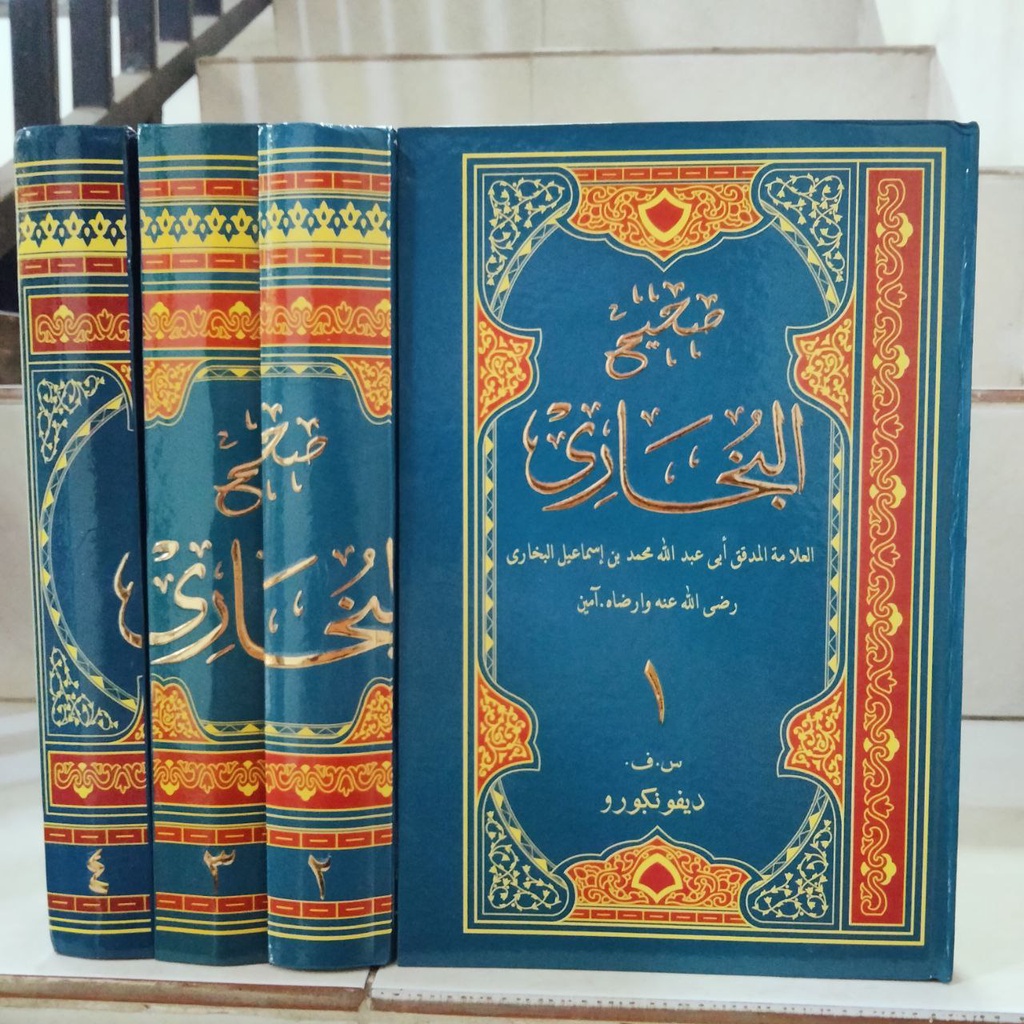 صحيح
البُخَارِىْ
العلامة المدقق أبى عبد الله محمد بن إسماعيل البخارى
رضى الله عنه وارضاه.آمين
١
س.ف.
ديفونكورو
صحيح
البُخَارِىْ
٢
٣
٤